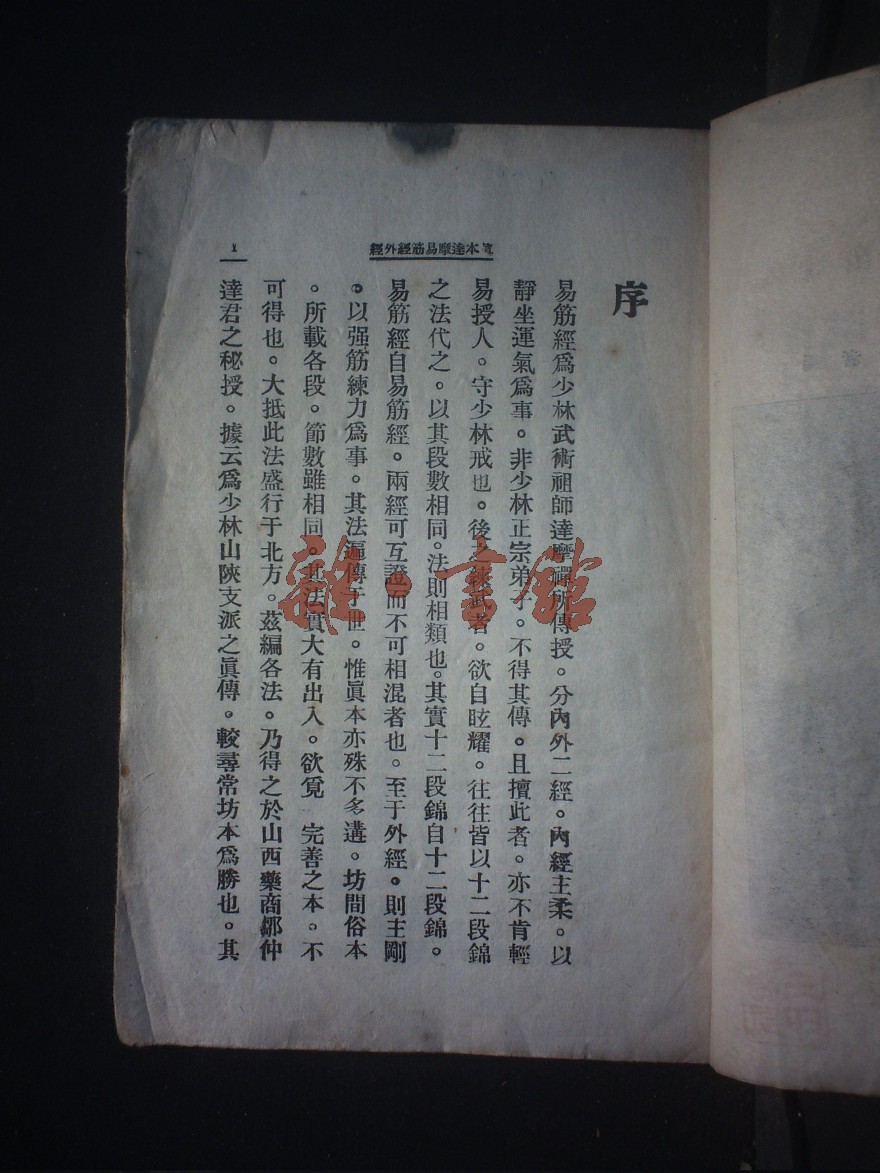 眞本達摩易筋經外經
1
序
易筋經爲少林武術祖師達摩禪所傳授。分內外二經。內經主柔。以
靜坐運氣爲事。非少林正宗弟子。不得其傳。且擅此者。亦不肯輕
易授人。守少林戒也。後之練武者。欲自眩耀。往往皆以十二段錦
之法代之。以其段數相同。法則相類也。其實十二段錦自十二段錦。
易筋經自易筋經。兩經可互證而不可相混者也。至于外經。則主剛
。以强筋練力爲事。其法遍傳于世。惟眞本亦殊不多遘。坊間俗本
。所載各段。節數雖相同。其法實大有出入。欲覓 完善之本。不
可得也。大抵此法盛行于北方。茲編各法。乃得之於山西藥商鄒仲
達君之秘授。據云爲少林山陝支派之眞傳。較尋常坊本爲勝也。其
雜·書館